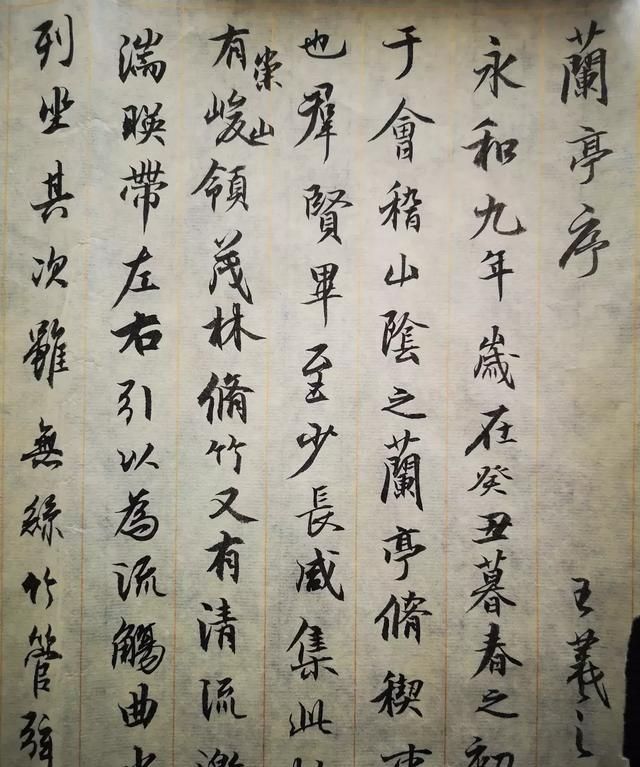 蘭亭序 王羲之
永和九年歲在癸丑暮春之初
于會稽山陰之蘭亭脩禊事
也羣賢畢至少長咸集此
有崇山峻領茂林脩竹又有清流激
湍暎帶左右引以為流觴曲水
列坐其次雖無絲竹管弦